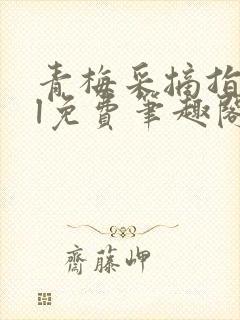 青梅采摘指
1免费笔趣阁
齋藤岬